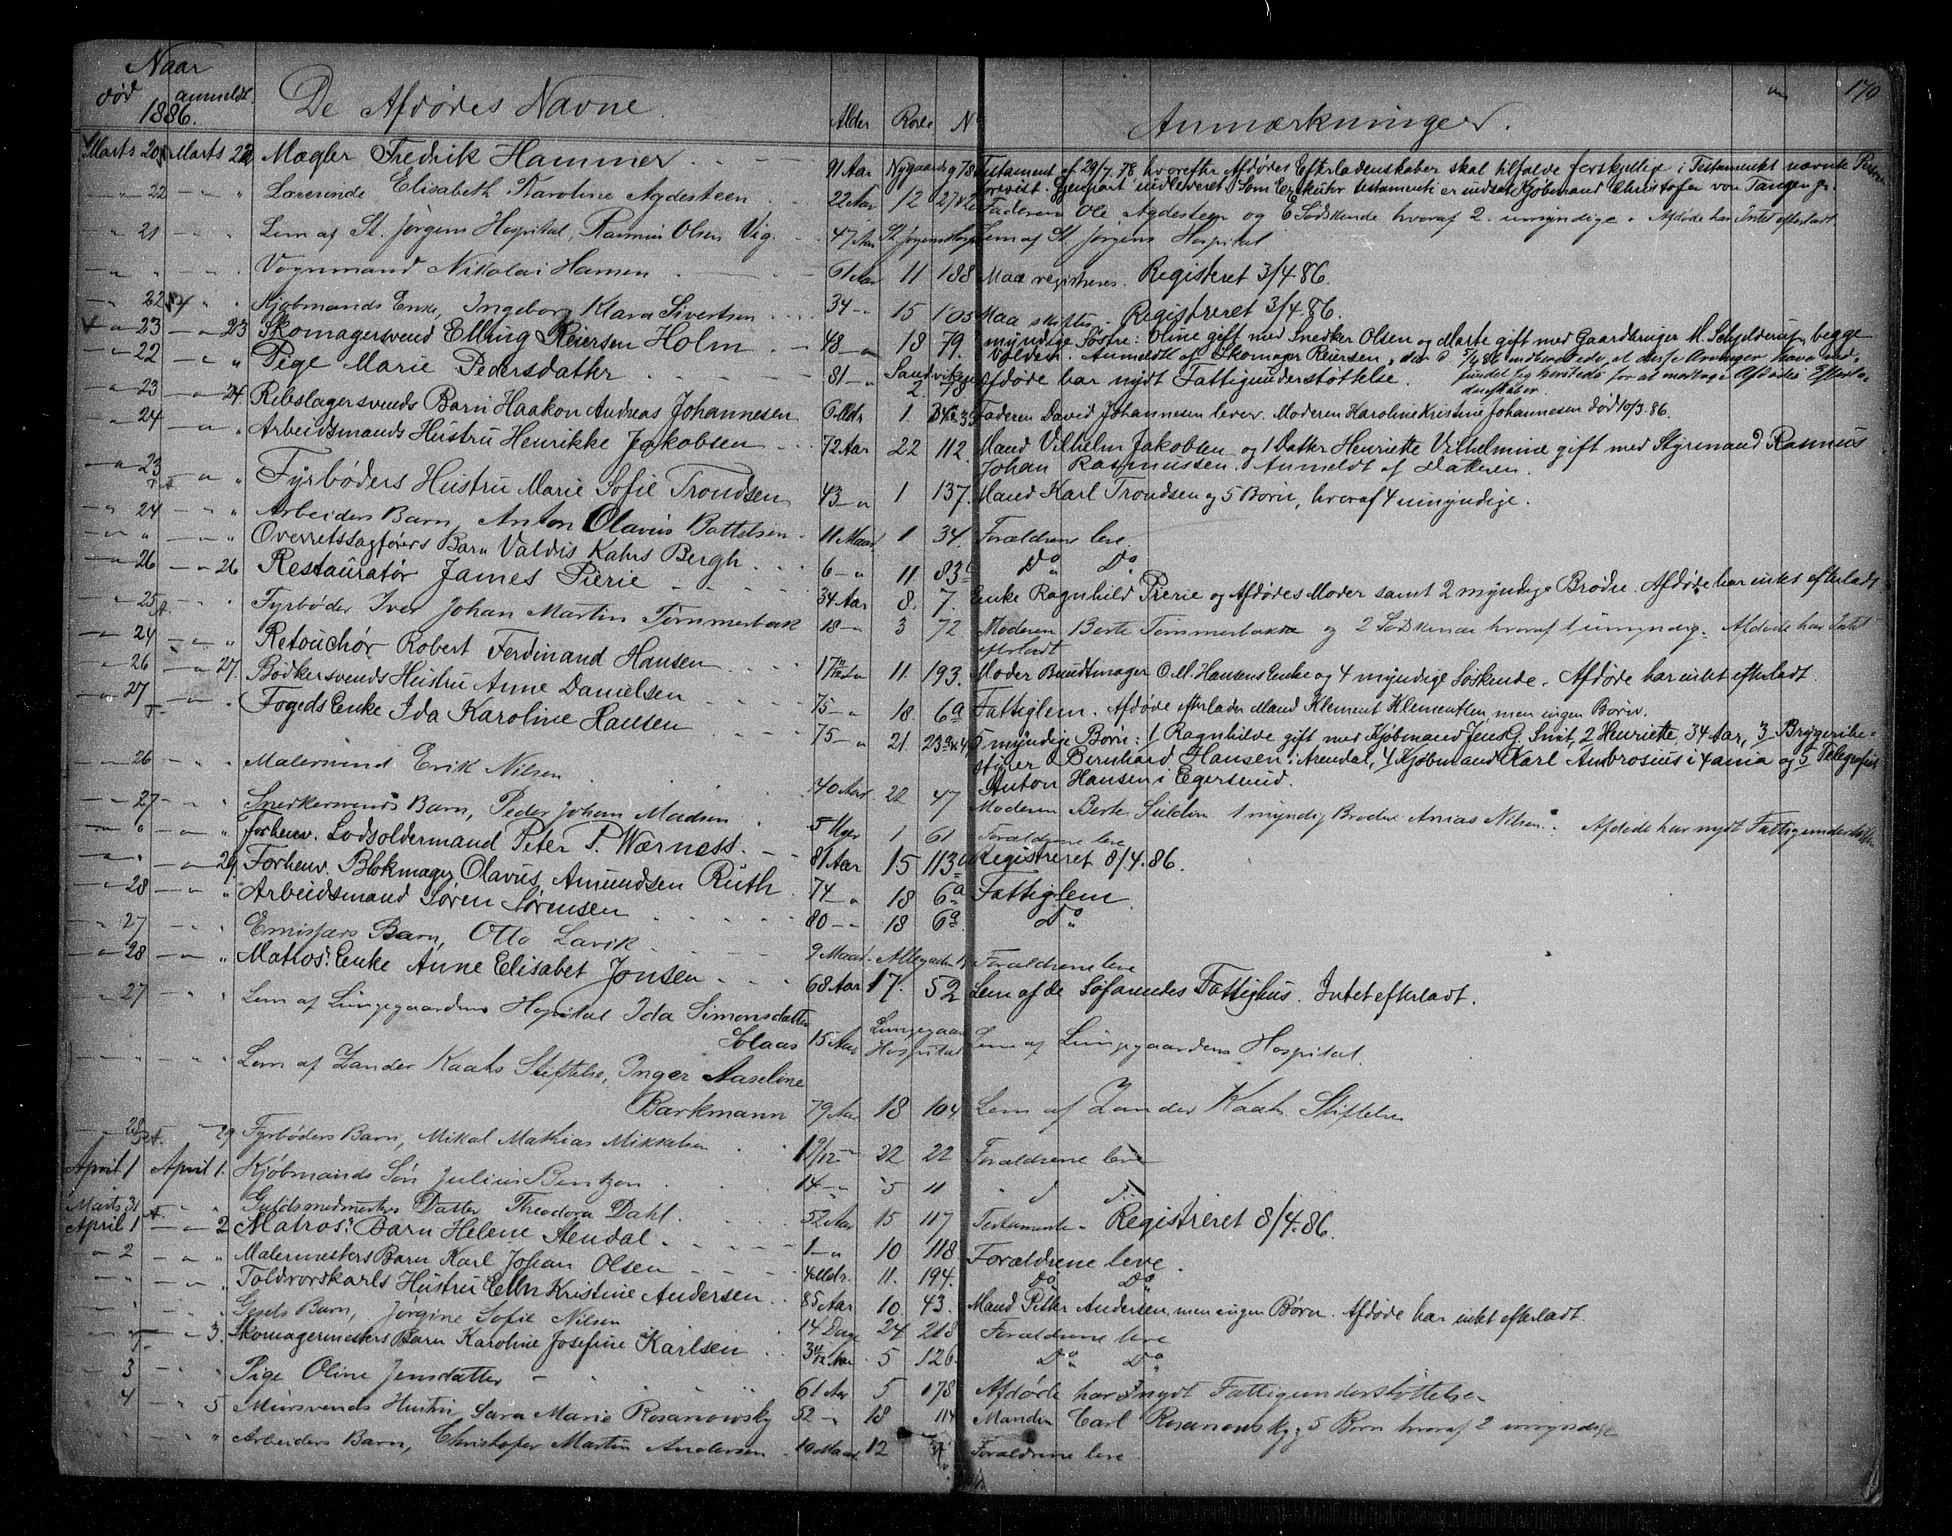 Naar
død anmeldt. De Afdødes Navne. Alder Rode N Anmærkninger. 170
1886.
Marts 20 Marts 22 Mægler Fredrik Hammer 91 Aar Nygaardsg 78 Testament af 29/7.78 hvorefter Afdødes Efterladenskaber skal tilfalde forskjellige i Testamentet nævnte
forevist. Gjenpart indleveret. Som Exekutor testamenti er indsat Kjøbmand Christofer von Tangen jr.
" 22 " Lærerinde Elisabeth Karoline Agdesteen 22 Aar 12 Faderen Ole Agdesteen og 6 Sødskende hvoraf 2 umyndige. Afdøde har Intet efterladt.
" 21 " Lem af St. Jørgens Hospital, Rasmus Olsen Vig. 47 Aar St Jørgens Hosp Lem af St. Jørgens Hospital
" " Vognmand Nikolai Hansen 61 Aar 11 188 Maa registreres. Registreret 3/4.86.
22 " Kjøbmands Enke, Ingeborg Klara Sivertsen 34 " 15 105 Maa skiftes. Registreret 3/4.86.
" 23 " 23 Skomagersvend Elling Reiersen Holm 48 " 18 79. myndige Søstre: Oline gift med Snedker Olsen og Marte gift med Gaardbruger M. Schjelderup, begge
Volden. Anmeldt af Skomager Reiersen, der d 5/4 86
" 22 " Pige Marie Pedersdatter 81 " Sandvik Afdøde har nydt Fattigunderstøttelse.
" 23 " 24. Rebslagersvends Barn Haakon Andreas Johannesen 6 Mdr. 1. Faderen David Johannesen lever. Moderen Karoline Kristine Johannesen død 10/3.86.
" 24 " Arbeidsmands Hustru Henrikke Jakobsen 72 Aar 22 112. Mand Vilhelm Jakobsen og 1 Datter Henriette Vilhelmine gift med Styrmand Rasmus
Johan Rasmussen. Anmeldt af Datteren.
" 23 " Fyrbøders Hustru Marie Sofie Trondsen 43 " 1 137. Mand Karl Trondsen og 5 Børn, hvoraf 4 umyndige.
" 24 " Arbeiders Barn, Anton Olavus Battelsen 11 Maan. 1 34. Forældrene leve.
" " Overretssagførers Barn Valdis Kahrs Bergh 6 " 11 83 Do Do
26 " 26 Restauratør James Pierie 34 Aar 8. 7. Enke Ragnhild Pierie og Afdødes Moder samt 2 myndige Brødre. Afdøde har intet efterladt
" 25 " Fyrbøder Iver Johan Martin Tømmerbak 18 " 3 72 Moderen Berte Tømmerbakke og 2 Sødskende hvoraf 1 umyndig. Afdøde har Intet
efterladt
" 24 " Retouchør Robert Ferdinand Hansen 17 11. 193. Moder Bundtmager O.M. Hansens Enke og 4 myndige Søskende. Afdøde har intet efterladt.
" 26 " 27. Bødkersvends Hustru Anne Danielsen 75 " 18 6a Fattiglem. Afdøde efterlader Mand Klement Klementsen, men ingen Børn.
" 27 " Fogeds Enke Ida Karoline Hansen 75 " 21. 5 myndige Børn: 1 Ragnhilde gift med Kjøbmand Jens G. Smit, 2 Henriette 34 Aar, 3 Bryggeribe-
styrer Bernhard Hansen i Arendal, 4 Kjøbmand Karl Ambrosius i Xania og 5 Telegrafist
Anton Hansen i Egersund.
" 26 Malersvend Erik Nilsen 40 Aar 22 47 Moderen Berte 1 myndig Broder Anias Nilsen. Afdøde har nydt Fattigunderstøttelse
" 27 " Snedkersvends Barn, Peder Johan Madsen 5 Uger 1 61 Forældrene leve
" " Forhenv. Lodsoldermand Peter P. Wærness. 81 Aar 15 113 Registreret 8/4.86.
" 29. Forhenv. Blokmager Olavus Amundsen Ruth 74 " 18 6a Fattiglem.
" 28 " Arbeidsmand Søren Sørensen 80 " 18 6a. Do
" 27 " Emissærs Barn, Otto Lavik 9 Maan. Allegaden Forældrene leve
" 28 " Matros. Enke Anne Elisabet Jonsen 68 Aar 17. 52 Lem af de Søfarendes Fattighus. Intet efterladt.
" 27 " Lem af Lungegaardens Hospital Ida Simonsdatter
Solaas 15 Aar Lungegaar Hospital Lem af Lungegaardens Hospital
" " Lem af Zander Kaahs Stiftelse, Inger Aaseline
Barkmann 79 Aar 18 104 Lem af Zander Kaahs Stiftelse
" 28 29 Fyrbøders Barn, Mikal Mathias Mikkelsen 22 22 Forældrene leve
April 1 April 1. Kjøbmands Søn Julius Bentzon 14 " 5 11 d d
Marts 31 " Guldsmedmesters Datter Theodora Dahl. 52 Aar 15 117 Testamente. Registreret 8/4.86.
April 1 " 2 Matros. Barn Helene Stendal. 1 " 10 118. Forældrene leve.
" 2 " Malermesters Barn Karl Johan Olsen 4 Mdr. 11. 194. Do Do
" " Toldvorskarls Hustru Ellen Kristine Andersen 85 Aar 10. 43. Mand Petter Andersen, men ingen Børn. Afdøde har intet efterladt.
" " Barn, Jørgine Sofie Nilsen 14 Dage 24 218 Forældrene leve
" 3. Skomagermesters Barn Karoline Josefine Karlsen 5 126. Do Do
3 " Pige Oline Jensdatter 61 Aar 5 178 Afdøde har nydt Fattigunderstøttelse
4 " 5 Mursvends Hustru Sara Marie Rosanowsky 52 " 18 114 Manden Carl Rosanowsky, 5 Børn hvoraf 2 umyndige
" " Arbeiders Barn, Christofer Martin Andersen 10 Maan. 12 Forældrene leve.